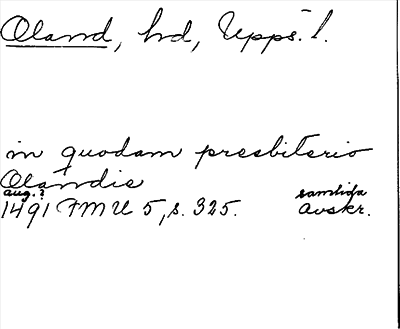 Oland, hd, Upps. l.
in quodam presbiterio
Olandie
aug.?
1491 FMU 5, s. 325. samtida
Avskr.